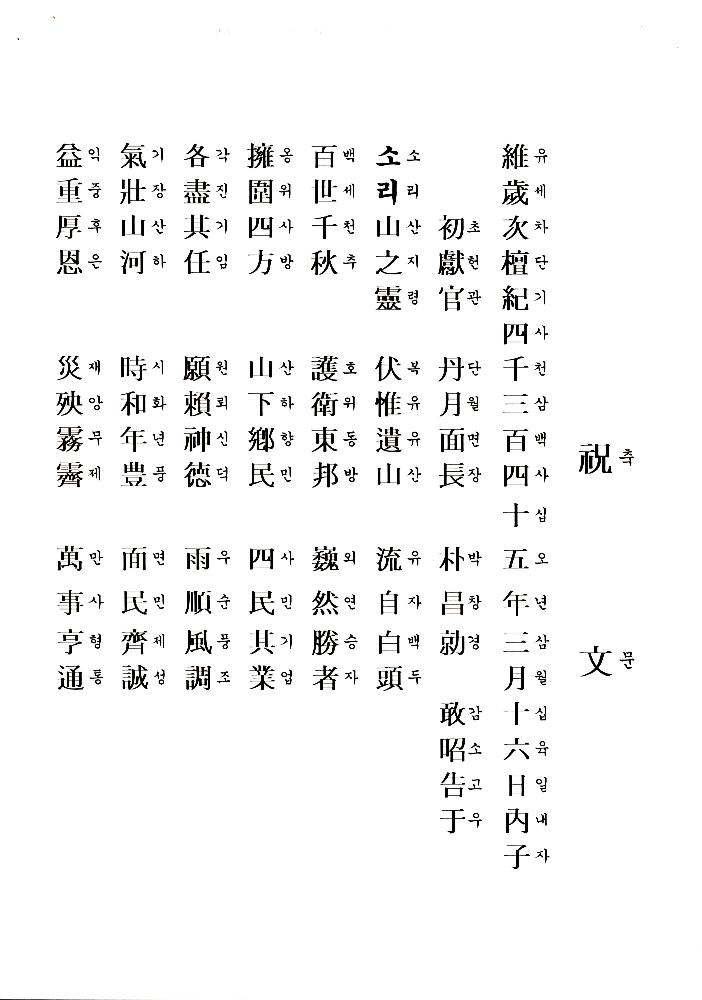 祝文
축문
維歲次檀紀四千三百四十五年三月十六日內子
유세차단기사천삼백사십오년삼월십육일내자
初獻官 丹月面長 朴昌勍 敢昭告于
초헌관 단월면장 박창경 감소고우
소리山之靈 伏惟遺山 流自白頭
소리산지령 복유유산 유자백두
百世千秋 護衛東邦 巍然勝者
백세천추 호위동방 외연승자
擁圍四方 山下鄕民 四民其業
옹위사방 산하향민 사민기업
各盡其任 願賴神德 雨順風調
각진기임 원뢰신덕 우순풍조
氣壯山河 時和年豊 面民齊誠
기장산하 시화년풍 면민제성
益重厚恩 災殃霧霽 萬事亨通
익중후은 재앙무제 만사형통